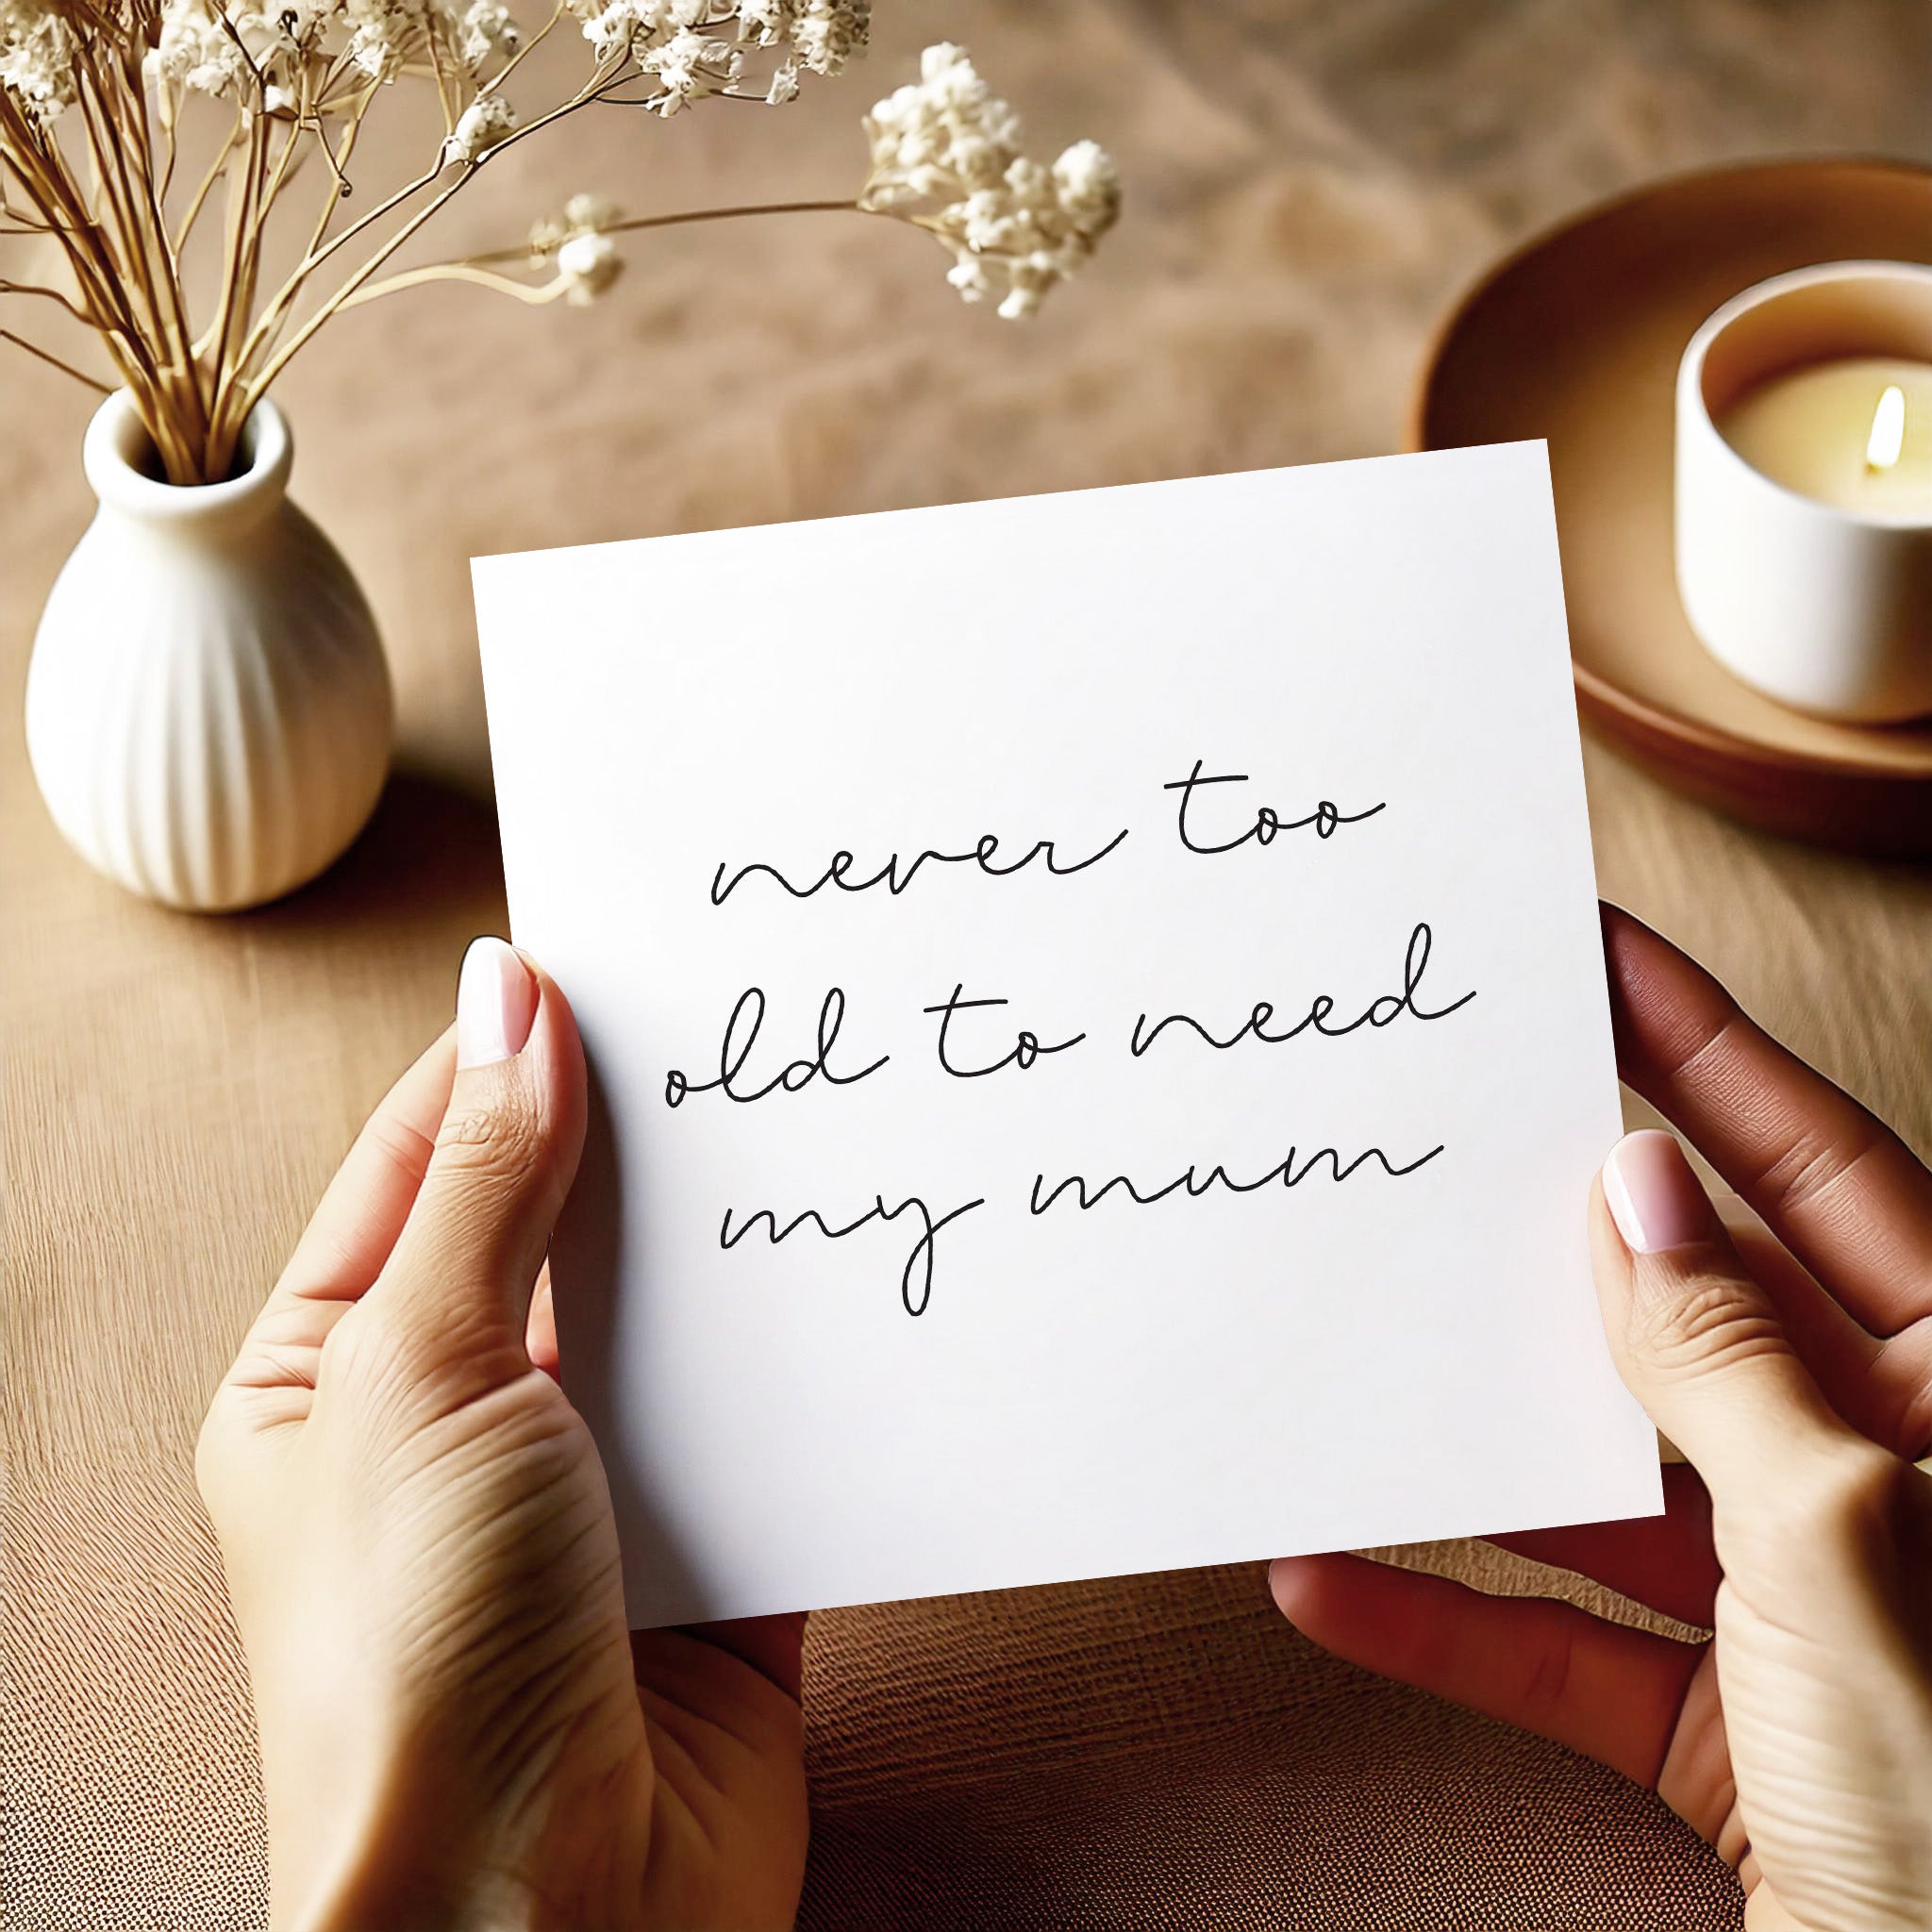 never too
old to need
my mum